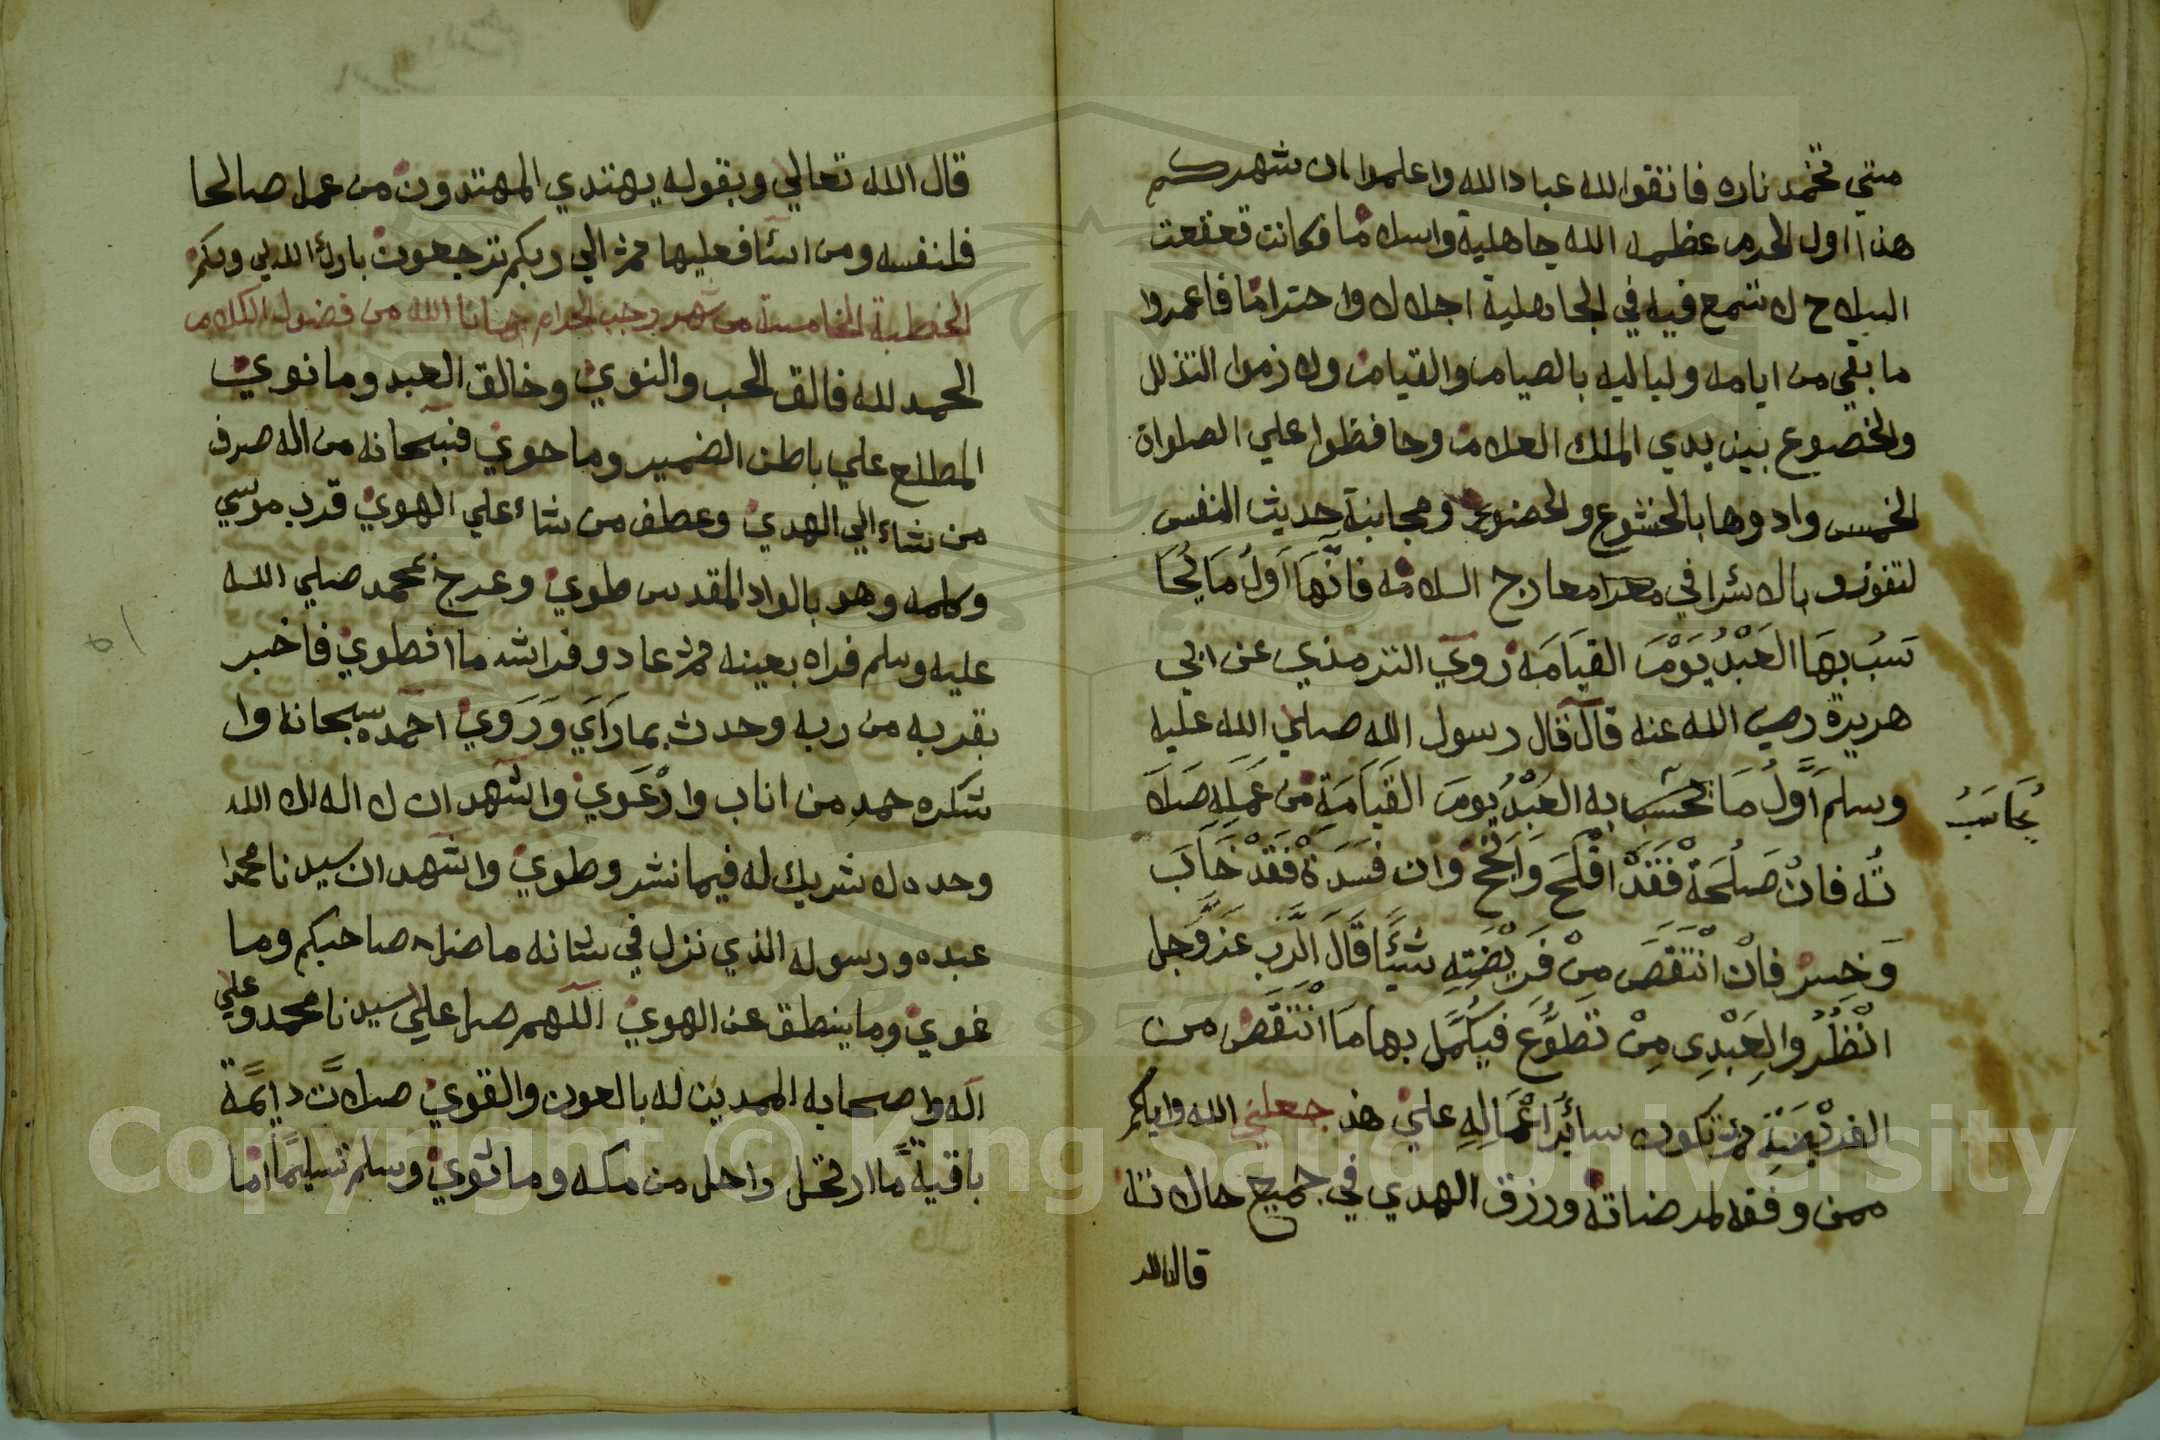 متي تخمد ناره فاتقوا لله عباد الله واعلموا ان شهركم
هذا اول الحرم عظمه الله جاهلية واسلاما فكانت قعقعت
السلاح لا تسمع فيه في الجاهلية اجلالا واحتراما فاعمروا
ما بقي من ايامه ولياليه بالصيام والقيام ولازموا التذلل
والخضوع بين يدي الملك العلام وحافظوا علي الصلوات
الخمس وادوها بالخشوع والخضوع ومجانبة حديث النفس
لتفوزو بالاشرافي معارج السلامه فانها اول ما يحا
سب بها العبد يوم القيامه روي الترمذي عن ابي
هريرة رضي الله عنه قال قال رسول الله صلي الله عليه
وسلم اول ما تحسب به العبد يوم القيامة من عمله صلا
يحاسب
ته فان صلحة فقد افلح وانجح وان فسدة فقد خاب
وخسر فان انتقص من فريضته شيئا قال الرب عز وجل
انظروا لعبدي من تطوع فيكمل بها ما انتقص من
الفريضة ثم تكون سائر اعماله علي هذ جعلني الله واياكم
ممن وفقه لمرضاته ورزق الهدي في جميع حالاته
قال الله
قال الله تعالي وبقوله يهتدي المهتدون من عمل صالحا
فلنفسه ومن اسآ فعليها ثم الي ربكم ترجعون بارك الله لي ولكم
الخطبة الخامسة من شهر رجب الحرام حمانا الله من فضول الكلام
الحمد لله فالق الحب والنوي وخالق العبد وما نوي
المطلع علي باطن الضمير وما حوي فسبحانه من اله صرف
من شاء الي الهدي وعطف من شاء علي الهوي قرب موسي
وكلمه وهو بالواد المقدس طوي وعرج بمحمد صلي الله
عليه وسلم فراه بعينه ثم عاد وفراشه ما انطوي فاخبر
بقربه من ربه وحدث بما رآي وروي احمده سبحانه وا
شكره حمد من اناب وارعوي واشهد ان لا اله الا الله
وحده لا شريك له فيما نشر وطوي واشهد ان سيدنا محمدا
عبده ورسوله الذي نزل في شانه ما ضل صاحبكم وما
غوي وما ينطق عن الهوي اللهم صل علي سيدنا محمد وعلي
آله واصحابه الممدين له بالعون والقوي صلاتا دايمة
باقية ما ارتحل راحل من مكه وما ثوي وسلم تسليما اما
Copyright © King Saud University
1957